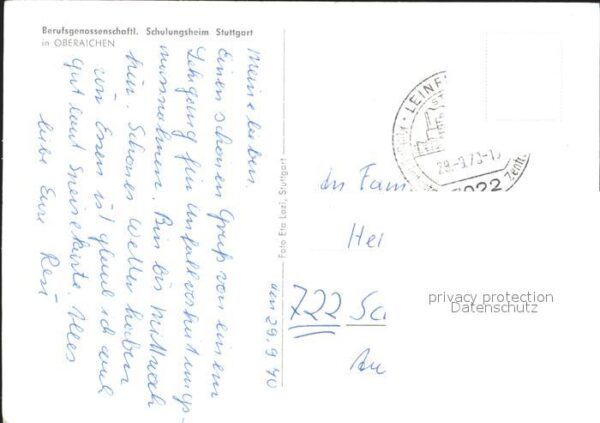 Berufsgenossenschaftl. Schulungsheim Stuttgart
in OBERAICHEN
den 29.9.70
Meine lieben.
Einen schönen Gruß von einem
Lehrgang für Unfallverhütungs-
massnahmen. Bin bis Mittwoch
hier. Schönes Wetter haben
wir. Essen ist glaub ich auch
gut laut Speisekarte. Alles
liebe Eure
Foto Eta Lazi, Stuttgart
LEINF
29.-9.70-1
7022
Zentr
An Fam
Hei
722 Sc
privacy protection
Datenschutz